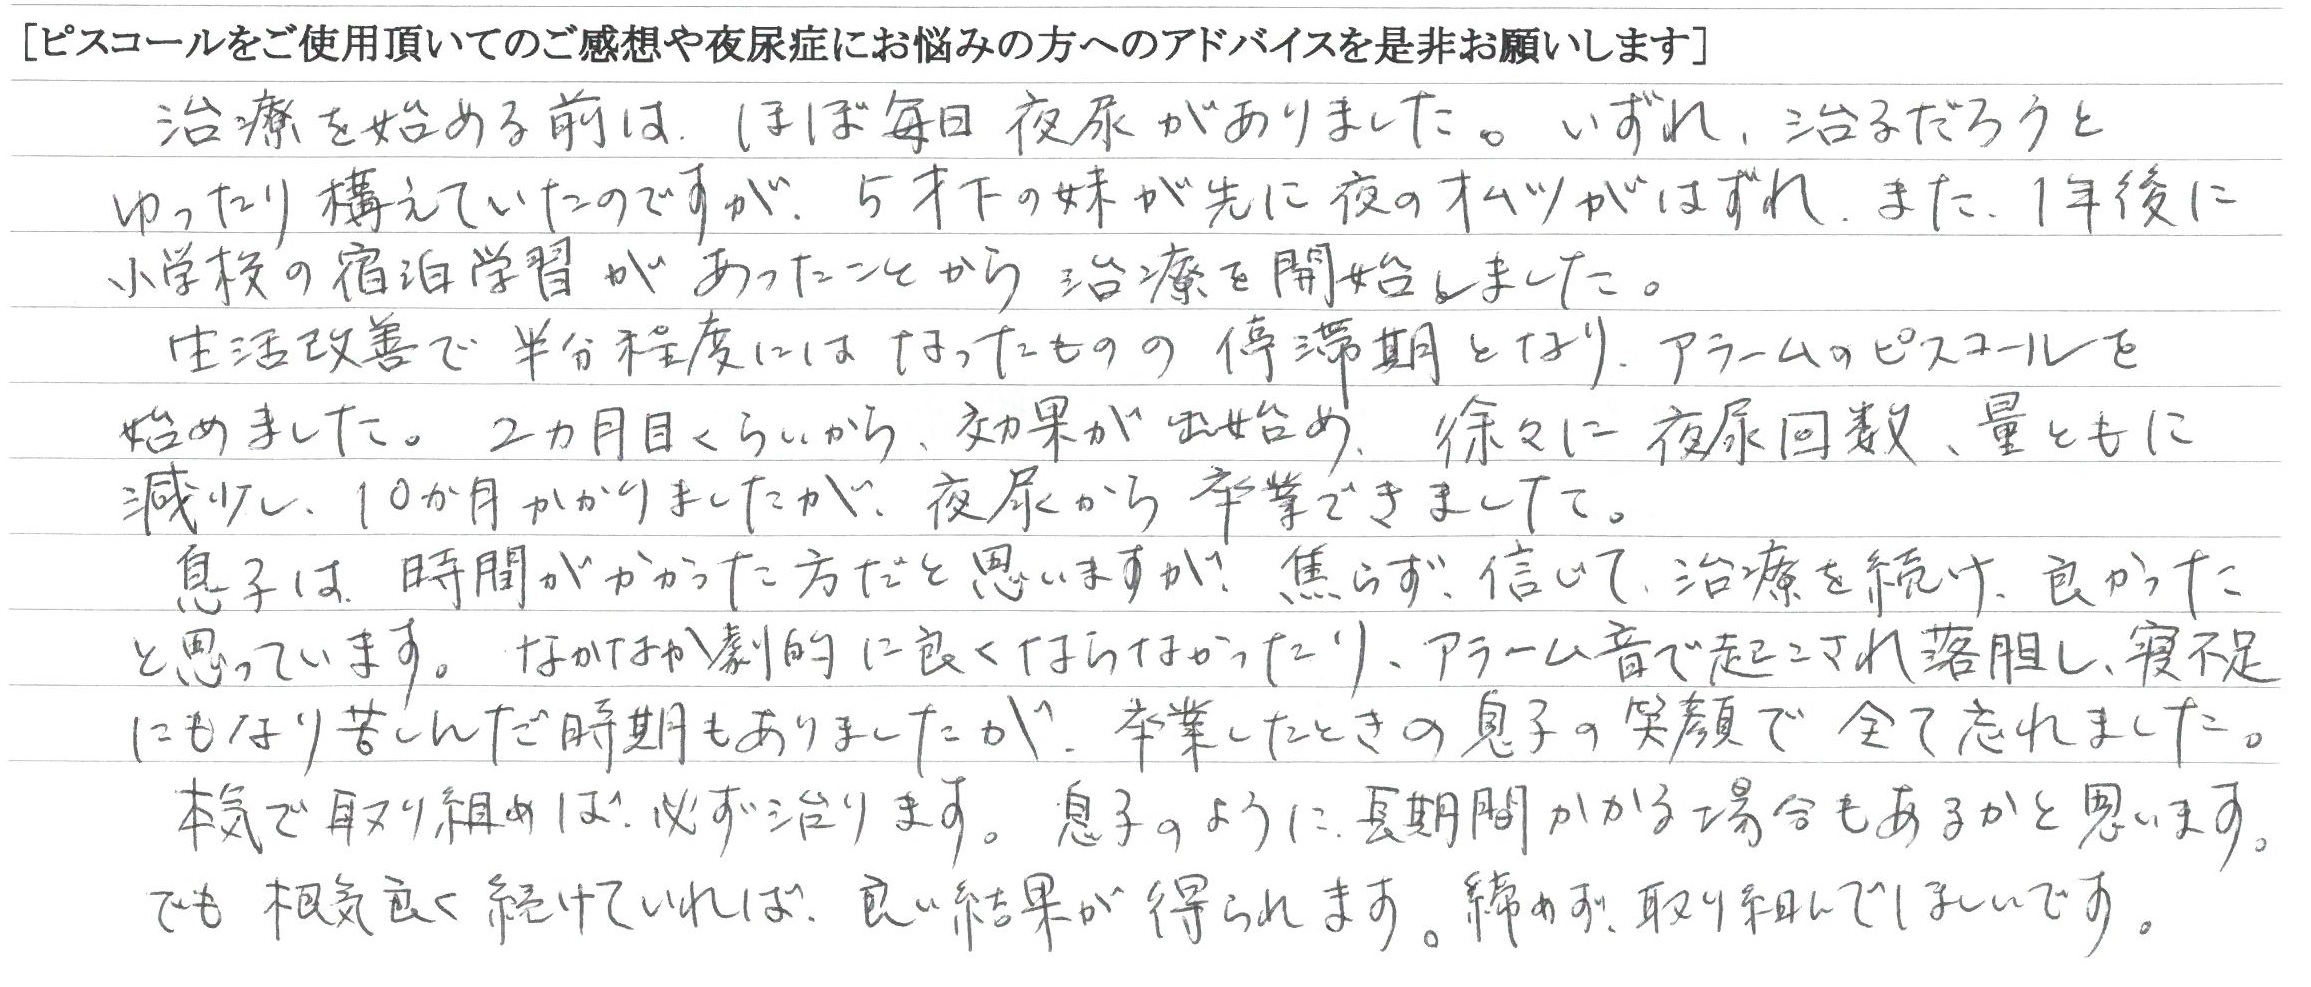 [ピスコールをご使用頂いてのご感想や夜尿症にお悩みの方へのアドバイスを是非お願いします]
治療を始める前は、ほぼ毎日夜尿がありました。いずれ、治るだろうと
ゆったり構えていたのですが、5才下の妹が先に夜のオムツがはずれ、また、1年後に
小学校の宿泊学習があったことから治療を開始しました。
生活改善で半分程度にはなったものの停滞期となり、アラームのピスコールを
始めました。2カ月目くらいから、効果が出始め、徐々に夜尿回数、量ともに
減少し、10か月かかりましたが、夜尿から卒業できましたて。
息子は、時間がかかった方だと思いますが、焦らず、信じて、治療を続け、良かった
と思っています。なかなか劇的に良くならなかったり、アラーム音で起こされ落胆し、寝不足
にもなり苦しんだ時期もありましたが、卒業したときの息子の笑顔で全て忘れました。
本気で取り組めば、必ず治ります。息子のように、長期間かかる場合もあるかと思います。
でも根気良く続けていれば、良い結果が得られます。締めず、取り組んでほしいです。